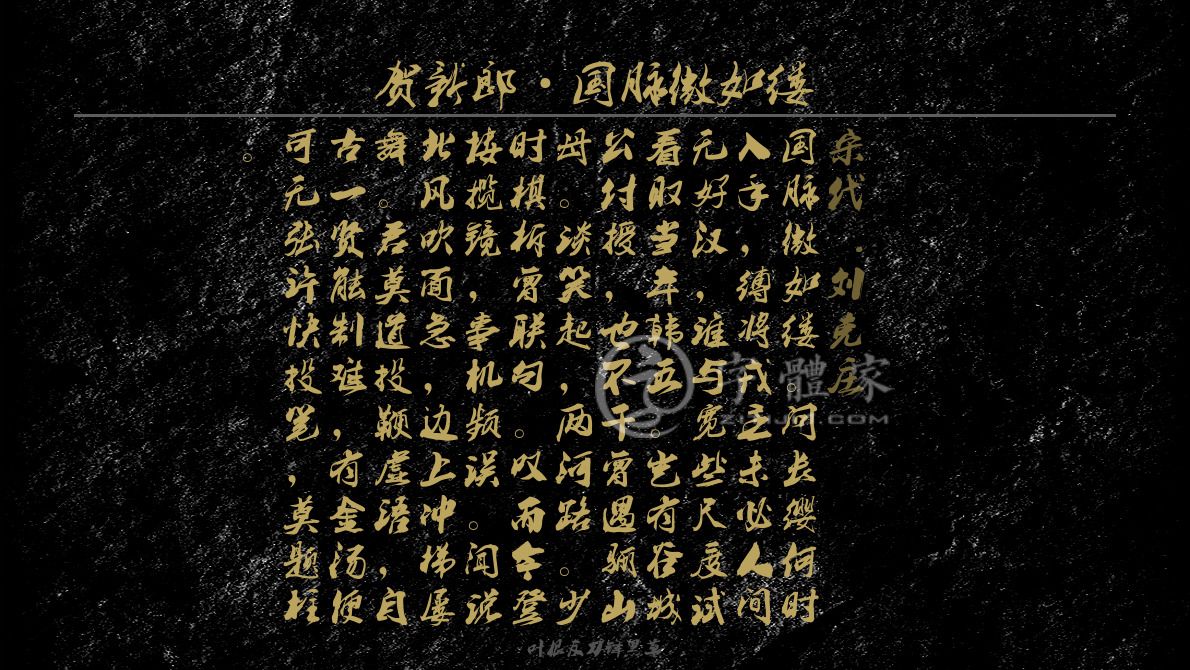 贺新郎·国脉微如缕
宋代·刘克庄
国脉微如缕。问长缨何时
入手,缚将戎主未必人间
无好汉,谁与宽些尺度试
看取当年韩五。岂有谷城
公付授,也不干曾遇骊山
母。谈笑起,两河路。少
时棋柝曾联句。叹而今登
楼揽镜,事机频误。闻说
北风吹面急,边上冲梯屡
舞。君莫道投鞭虚语,自
古一贤能制难,有金汤便
可无张许快投笔,莫题柱
。
字體家
叶根友刀锋黑草